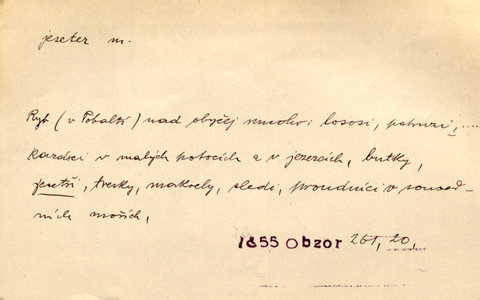 jeseter m.
Ryb (v Pobaltí) nad obyčej mnoho: lososi, pstruzi, ....
v malých potocích a v jezerách, butky,
jesetři, tresky, makrely, sledi, proudníci v soused-
ních mořích,
1855 Obzor 261, 20,